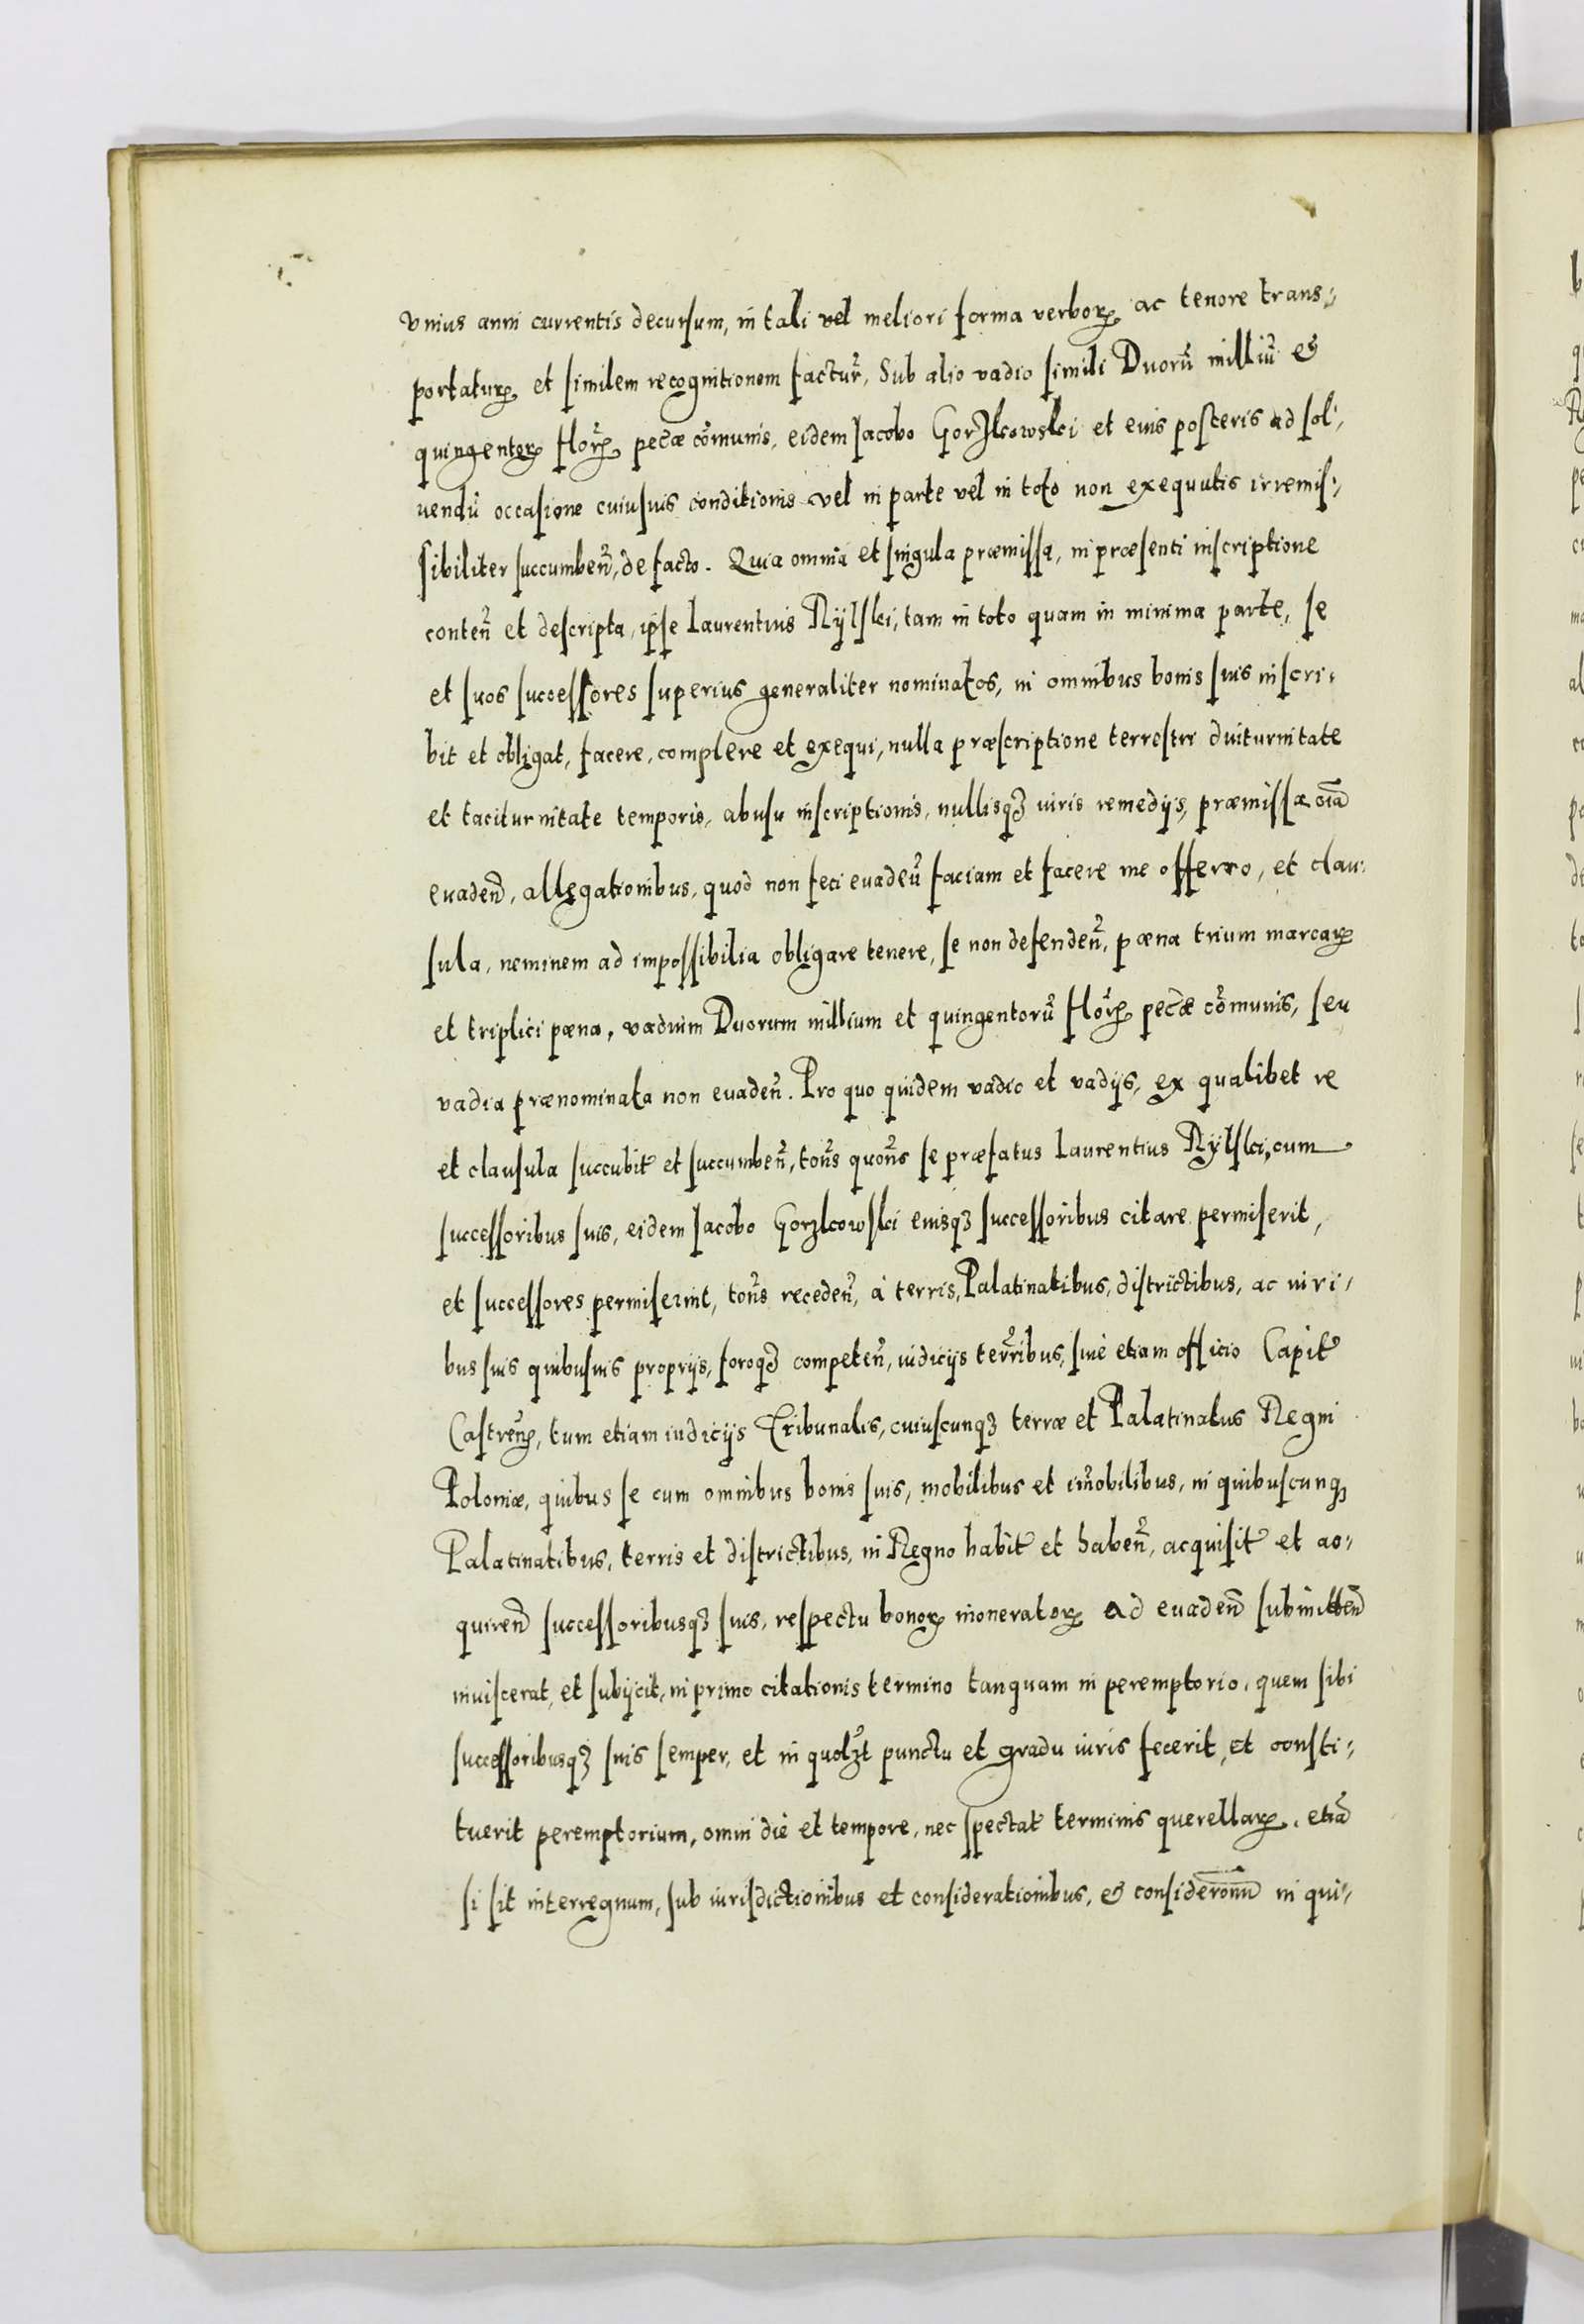 vnius anni currentis decursum, in tali vel meliori forma verborꝝ ac tenore trans-
portaturꝝ et similem recognitionem factur̃, Sub alio vadio simili Duorũ milliũ et
quingentorꝝ flor̃ꝝ pec̃æ cõmunis, eidem Iacobo Gorzkowski et eius posteris ad sol-
uendũ occasione cuiusuis conditionis vel in parte vel in toto non exequutis irremis-
sibiliter succumbeñ, de facto. Quia omnia et singula præmissa, in præsenti inscriptione
conteñ et descripta, ipse Laurentius Rylski, tam in toto quam in minima parte, se
et suos successores superius generaliter nominatos, in omnibus bonis suis inscri-
bit et obligat, facere, complere et exequi, nulla præscriptione terrestri diuturnitate
et taciturnitate temporis, abusu inscriptionis, nullisqꝫ iuris remedijs, præmissæ oĩa
euadeñd, allegationibus, quod non feci euadeũ faciam et facere me offerro, et clau-
sula, neminem ad impossibilia obligare tenere, se non defendeñ, pæna trium marcarꝝ
et triplici pæna, vadium Duorum millium et quingentorũ flor̃ꝝ pec̃æ cõmunis, seu
vadia prænominata non euadeñ. Pro quo quidem vadio et vadijs, ex qualibet re
et clausula succubit̃ et succumbeñ, tõns quõns se præfatus Laurentius Rylski, cum
successoribus suis, eidem Iacobo Gorzkowski eiusqꝫ successoribus citare permiserit,
et successores permiserint, tõns recedeñ, à terris, Palatinatibus, districtibus, ac iuri-
bus suis quibusuis proprijs, foroqꝫ competeñ, iudicijs terr̃ibus, siue etiam officio Capit̃
Castreñꝝ, tum etiam iudicijs Tribunalis, cuiuscunqꝫ terræ et Palatinatus Regni
Poloniæ, quibus se cum omnibus bonis suis, mobilibus et im̃obilibus, in quibuscunqꝫ
Palatinatibus, terris et districtibus, in Regno habit̃ et habeñ, acquisit̃ et ac-
quireñd successoribusqꝫ suis, respectu bonorꝝ inoneratorꝝ ad euadeñd submitteñd
inuiscerat, et subijcit, in primo citationis termino tanquam in peremptorio, quem sibi
successoribusqꝫ suis semper, et in quolꝫt punctu et gradu iuris fecerit, et consti-
tuerit peremptorium, omni die et tempore, nec spectat̃ terminis querellarꝝ, etiã
si sit interregnum, sub iurisdictionibus et considerationibus, et consider̃onũ in qui-